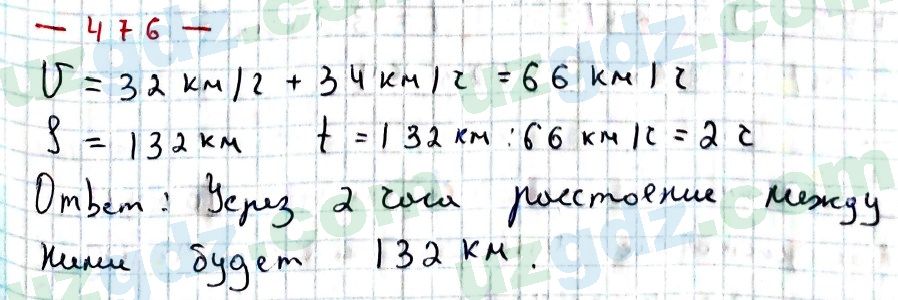 — 476 —
V = 32 км/ч + 34 км/ч = 66 км/ч
S = 132 км t = 132 км : 66 км/ч = 2 ч
Ответ: Через 2 часа расстояние между
ними будет 132 км.
uzgdz.com